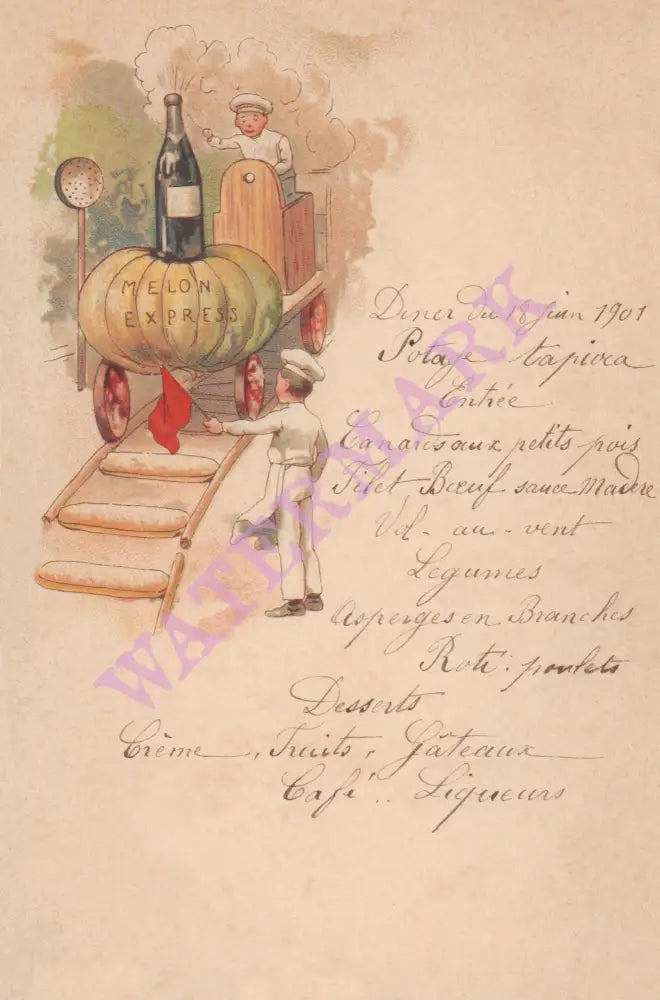 MELON
EXPRESS
Diner du 18 juin 1901
Potage tapioca
Entrée
Canards aux petits pois
Filet Bœuf sauce Madère
Vol-au-vent
Légumes
Asperges en Branches
Roti: poulets
Desserts
Crème, Fruits, Gâteaux
Café.. Liqueurs
WATERMARK